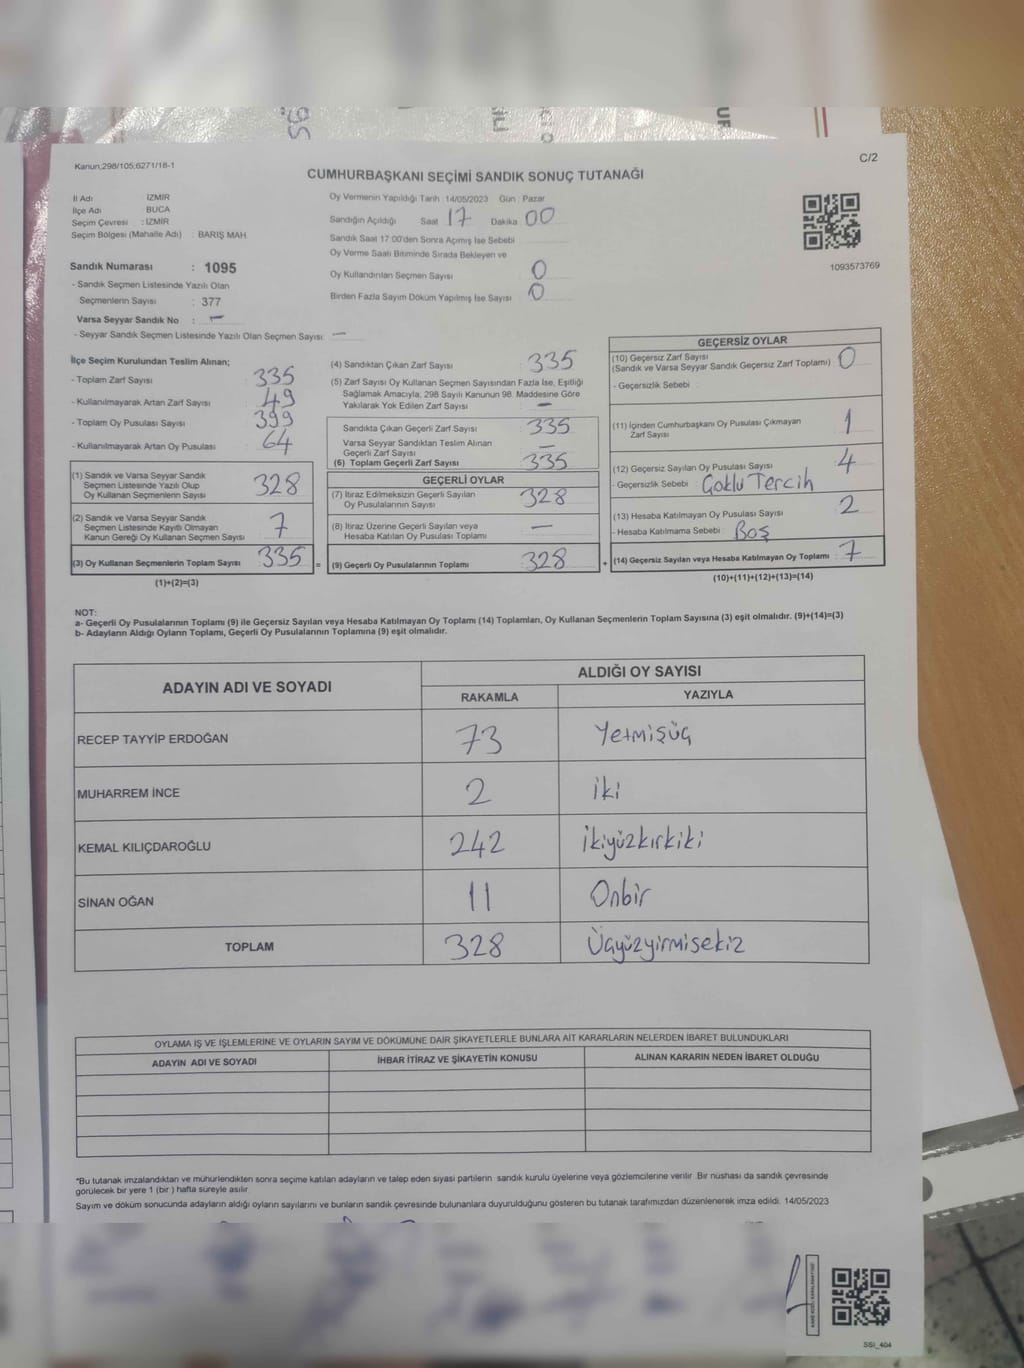 Kanun;298/105;6271/18-1
C/2
CUMHURBAŞKANI SEÇİMİ SANDIK SONUÇ TUTANAĞI
İl Adı İZMİR
İlçe Adı BUCA
Seçim Çevresi : İZMİR
Seçim Bölgesi (Mahalle Adı) : BARIŞ MAH
Sandık Numarası : 1095
- Sandık Seçmen Listesinde Yazılı Olan
Seçmenlerin Sayısı : 377
Varsa Seyyar Sandık No : —
- Seyyar Sandık Seçmen Listesinde Yazılı Olan Seçmen Sayısı: —
Oy Vermenin Yapıldığı Tarih :14/05/2023 Gün : Pazar
Sandığın Açıldığı Saat 17 Dakika 00
Sandık Saat 17:00'den Sonra Açımış İse Sebebi
Oy Verme Saati Bitiminde Sırada Bekleyen ve
Oy Kullandırılan Seçmen Sayısı 0
Birden Fazla Sayım Döküm Yapılmış İse Sayısı 0
1093573769
İlçe Seçim Kurulundan Teslim Alınan;
- Toplam Zarf Sayısı 335
- Kullanılmayarak Artan Zarf Sayısı 49
- Toplam Oy Pusulası Sayısı 399
- Kullanılmayarak Artan Oy Pusulası 64
(1) Sandık ve Varsa Seyyar Sandık
Seçmen Listesinde Yazılı Olup
Oy Kullanan Seçmenlerin Sayısı 328
(2) Sandık ve Varsa Seyyar Sandık
Seçmen Listesinde Kayıtlı Olmayan
Kanun Gereği Oy Kullanan Seçmen Sayısı 7
(3) Oy Kullanan Seçmenlerin Toplam Sayısı 335 =
(1)+(2)=(3)
(4) Sandıktan Çıkan Zarf Sayısı : 335
(5) Zarf Sayısı Oy Kullanan Seçmen Sayısından Fazla İse, Eşitliği
Sağlamak Amacıyla, 298 Sayılı Kanunun 98. Maddesine Göre
Yakılarak Yok Edilen Zarf Sayısı : —
Sandıkta Çıkan Geçerli Zarf Sayısı : 335
Varsa Seyyar Sandıktan Teslim Alınan
Geçerli Zarf Sayısı —
(6) Toplam Geçerli Zarf Sayısı : 335
GEÇERLİ OYLAR
(7) İtiraz Edilmeksizin Geçerli Sayılan
Oy Pusulalarının Sayısı 328
(8) İtiraz Üzerine Geçerli Sayılan veya
Hesaba Katılan Oy Pusulası Toplamı —
(9) Geçerli Oy Pusulalarının Toplamı 328 +
GEÇERSİZ OYLAR
(10) Geçersiz Zarf Sayısı
(Sandık ve Varsa Seyyar Sandık Geçersiz Zarf Toplamı) : 0
- Geçersizlik Sebebi :
(11) İçinden Cumhurbaşkanı Oy Pusulası Çıkmayan
Zarf Sayısı 1
(12) Geçersiz Sayılan Oy Pusulası Sayısı 4
- Geçersizlik Sebebi : Çoklu Tercih
(13) Hesaba Katılmayan Oy Pusulası Sayısı : 2
- Hesaba Katılmama Sebebi : Boş
(14) Geçersiz Sayılan veya Hesaba Katılmayan Oy Toplamı : 7
(10)+(11)+(12)+(13)=(14)
NOT:
a- Geçerli Oy Pusulalarının Toplamı (9) ile Geçersiz Sayılan veya Hesaba Katılmayan Oy Toplamı (14) Toplamları, Oy Kullanan Seçmenlerin Toplam Sayısına (3) eşit olmalıdır. (9)+(14)=(3)
b- Adayların Aldığı Oyların Toplamı, Geçerli Oy Pusulalarının Toplamına (9) eşit olmalıdır.
ADAYIN ADI VE SOYADI ALDIĞI OY SAYISI
RAKAMLA YAZIYLA
RECEP TAYYİP ERDOĞAN 73 Yetmişüç
MUHARREM İNCE 2 iki
KEMAL KILIÇDAROĞLU 242 ikiyüzkırkiki
SİNAN OĞAN 11 Onbir
TOPLAM 328 Üçyüzyirmisekiz
OYLAMA İŞ VE İŞLEMLERİNE VE OYLARIN SAYIM VE DÖKÜMÜNE DAİR ŞİKAYETLERLE BUNLARA AİT KARARLARIN NELERDEN İBARET BULUNDUKLARI
ADAYIN ADI VE SOYADI İHBAR İTİRAZ VE ŞİKAYETİN KONUSU ALINAN KARARIN NEDEN İBARET OLDUĞU
*Bu tutanak imzalandıktan ve mühürlendikten sonra seçime katılan adayların ve talep eden siyasi partilerin sandık kurulu üyelerine veya gözlemcilerine verilir. Bir nüshası da sandık çevresinde
görülecek bir yere 1 (bir ) hafta süreyle asılır
Sayım ve döküm sonucunda adayların aldığı oyların sayılarını ve bunların sandık çevresinde bulunanlara duyurulduğunu gösteren bu tutanak tarafımızdan düzenlenerek imza edildi. 14/05/2023
SSI_404